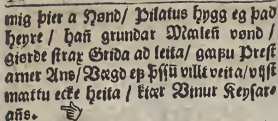 mig þier a Hønd/ Pilatus hygg eg þad
heyre/ hañ grundar Mæleñ vønd/
giørde strax Grida ad leita/ gææu Prest
arner Ans/ Vægd eþ þssū villt veita/ vijst
mættu ecke heita/ kiær Vinur Keysar-
añs. ☞